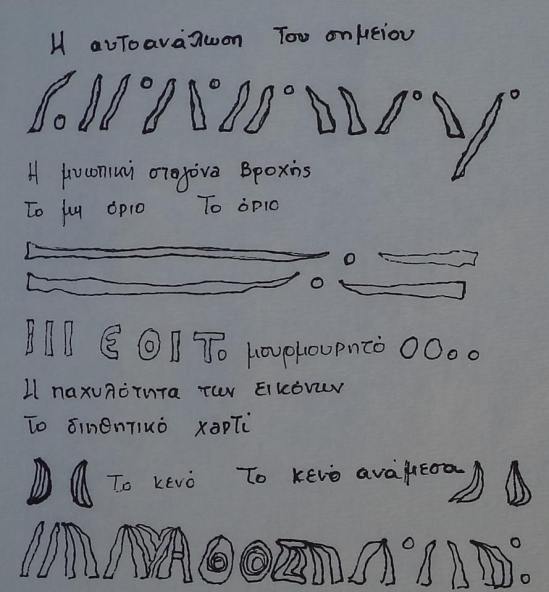 Η αυτοανάλωση Του σημείου
Η μυωπική σταγόνα Βροχής
Το μη όριο Το όριο
Ι Ι Ι Є Θ Ι Το μουρμουρητό
Η παχυλότητα των εικόνων
Το διηθητικό χαρτί
Το κενό Το κενό ανάμεσα